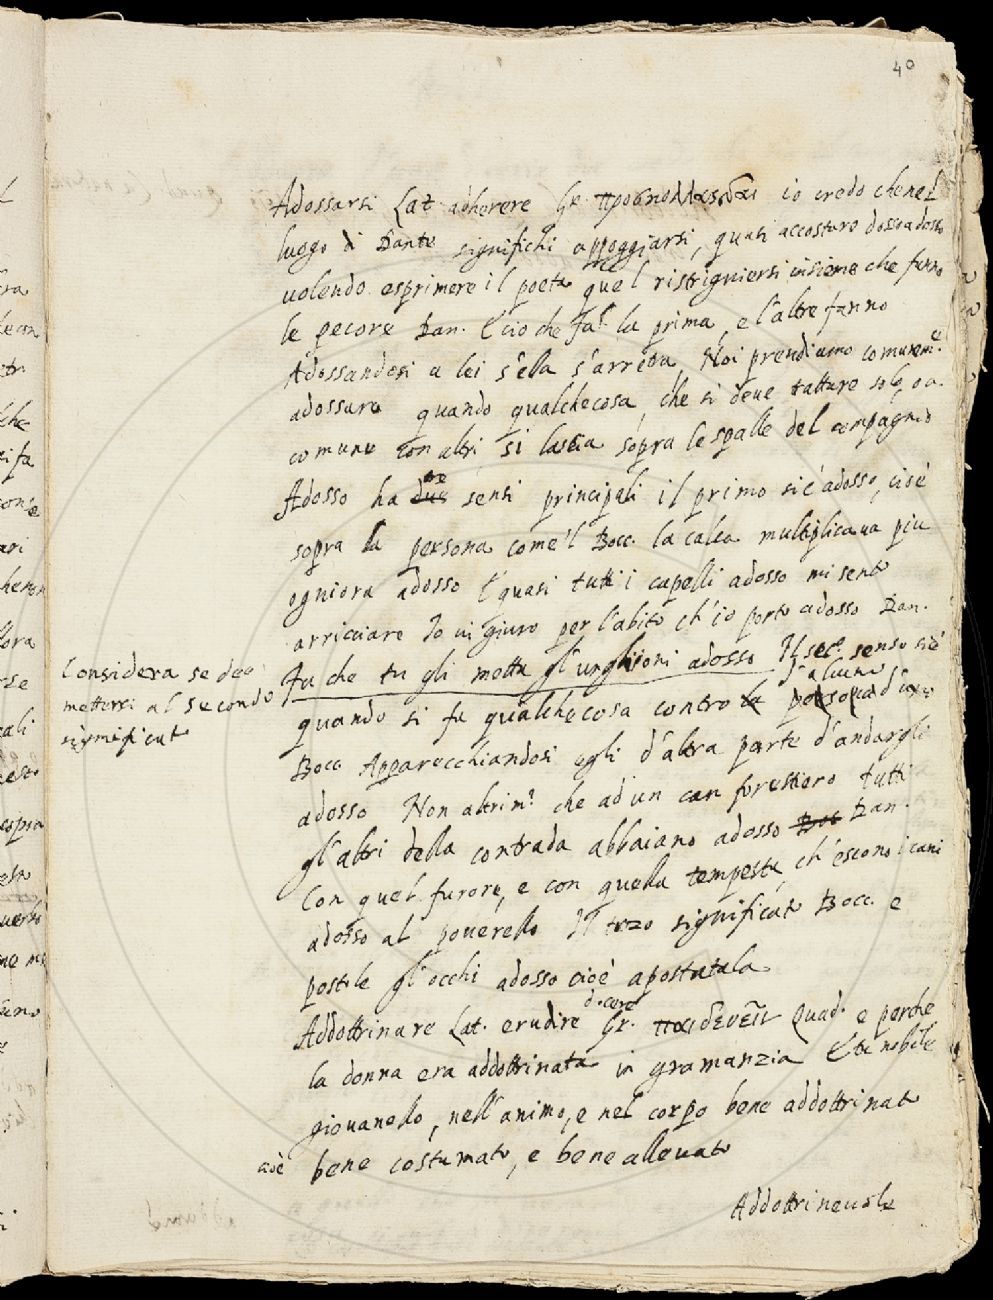 40
Adossarsi Lat. adherere Gr. προσκολλᾶσθαι io credo che nel
luogo di Dante significhi appoggiarsi, quasi accostare dosso a dosso
uolendo esprimere il poeta quel ristrigniersi insieme che fanno
le pecore Dan. E cio che fa la prima, e l'altre fanno
Adossandosi a lei s'ella s'arresta, Noi prendiamo comunem.e
adossare quando qualche cosa, che si deue trattare solo, o a
comune con altri si lascia sopra le spalle del compagnio
Adosso ha due tre sensi principali il primo si è adosso, cioè
sopra la persona come 'l Bocc. la calca multiplicaua piu
ogniora adosso E quasi tutti i capelli adosso mi sento
arricciare Io ui giuro per l'abito ch'io porto adosso Dan.
Fa che tu gli metta gl'unghioni adosso Il sec.o senso si è
Considera se dee
mettersi al secondo
significato
quando si fa qualche cosa contro la persona d'alcuno
Bocc. Apparecchiandosi egli d'altra parte d'andargli
adosso Non altrim.i che ad un can forestiero tutti
gl'altri della contrada abbaiano adosso Boc Dan.
Con quel furore, e con quella tempesta ch'escono i cani
adosso al pouerello Il terzo significato Bocc. e
postole gl'occhi adosso cioè apostatala
Addottrinare Lat. erudire docere Gr. παιδευεῖν Quad. e perche
la donna era addottrinata in gramanzia E tu nobile
giouanello, nell'animo, e nel corpo bene addottrinato
cioè bene costumato, e bene alleuato
Addottrineuole